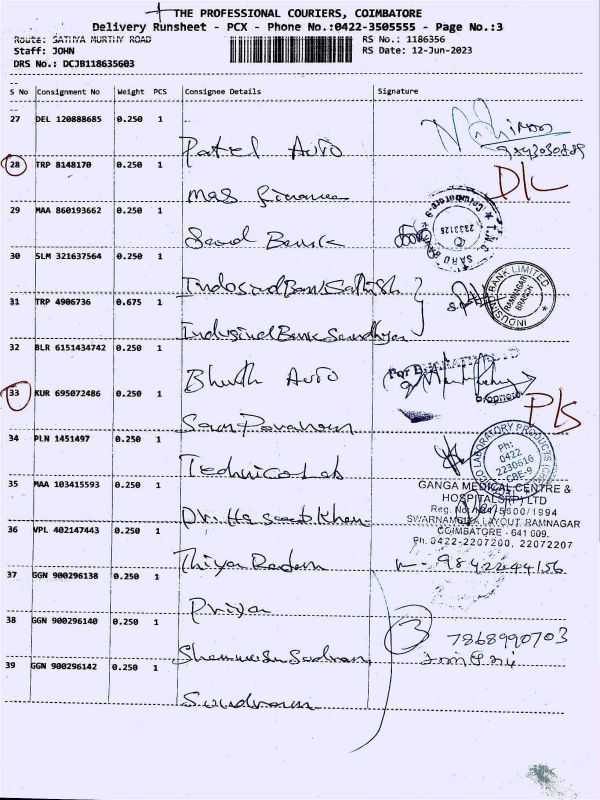 THE PROFESSIONAL COURIERS, COIMBATORE
Delivery Runsheet - PCX - Phone No.:0422-3505555 - Page No.:3
Route: SATHYA MURTHY ROAD
RS No.: 1186356
Staff: JOHN
RS Date: 12-Jun-2023
DRS No.: DCJB118635603
S No Consignment No Weight PCS Consignee Details Signature
27 DEL 120888685 0.250 1
Patel Auto
28 TRP 8148170 0.250 1
D/L
Mas Finance
29 MAA 860193662 0.250 1
Sarod Bank
30 SLM 321637564 0.250 1
IndusindBank Sathish
INDUSIND BANK LIMITED
RAMNAGAR BRANCH
31 TRP 4906736 0.675 1
IndusindBank Sandhya
32 BLR 6151434742 0.250 1
Bharath Auto
33 KUR 695072486 0.250 1
P/S
34 PLN 1451497 0.250 1
Ph:
0422
2230616
CBE-9
Technico Lab
35 MAA 103415593 0.250 1
GANGA MEDICAL CENTRE &
HOSPITALS (P) LTD
SWARNAMBIKA LAYOUT, RAMNAGAR
COIMBATORE - 641 009.
Ph. 0422-2207200, 22072207
36 VPL 402147443 0.250 1
37 GGN 900296138 0.250 1
Priya
38 GGN 900296140 0.250 1
3
7868990703
39 GGN 900296142 0.250 1